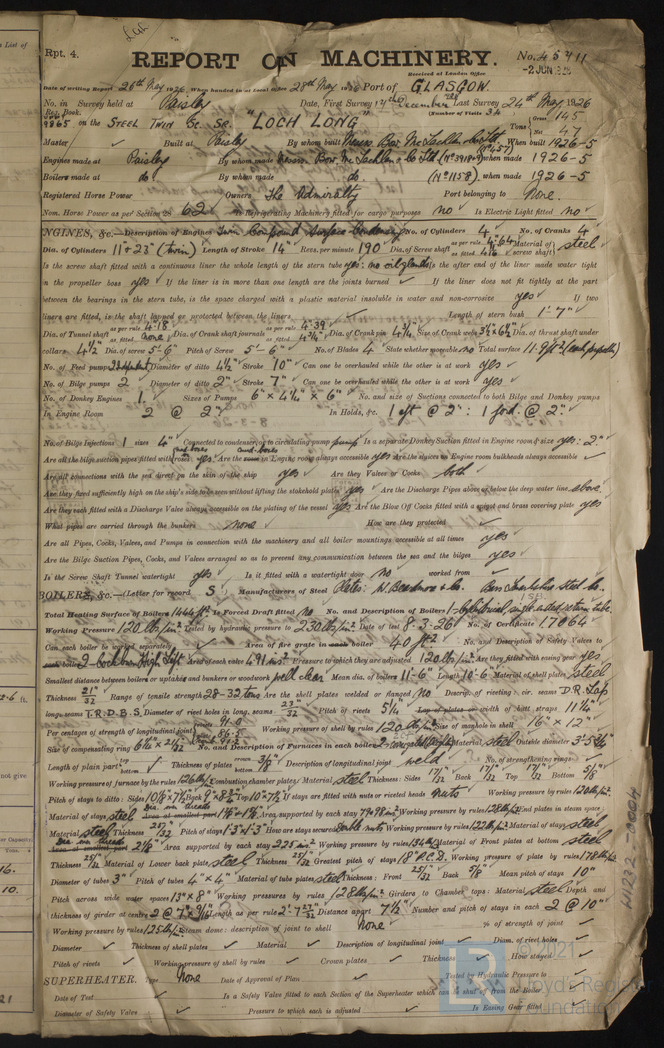 Rpt. 4.
REPORT ON MACHINERY.
No. 45411
Received at London Office
-2 JUN 926
Date of writing Report 26th May 1926 When handed in at Local Office 28th May 1926 Port of GLASGOW.
No. in Survey held at Paisley Date, First Survey 14th December Last Survey 24th May 1926
Reg. Book. (Number of Visits 34
9865 on the STEEL TWIN SC. SR. "LOCH LONG" Tons Gross 145 Net 47
Master ✓ Built at Paisley By whom built Messrs. Bow, McLachlan & Co Ltd (No 457) When built 1926-5
Engines made at Paisley By whom made Messrs. Bow, McLachlan & Co Ltd (No 3918-9) when made 1926-5
Boilers made at do. By whom made do. (No 1158). when made 1926-5
Registered Horse Power Owners The Admiralty Port belonging to None.
Nom. Horse Power as per Section 28 62 Is Refrigerating Machinery fitted for cargo purposes no Is Electric Light fitted no
ENGINES, &c.—Description of Engines Twin Compound Surface Condensing No. of Cylinders 4 No. of Cranks 4
Dia. of Cylinders 11 & 23" (twin) Length of Stroke 14" Revs. per minute 190 Dia. of Screw shaft as per rule as fitted Material of screw shaft) steel
Is the screw shaft fitted with a continuous liner the whole length of the stern tube yes: no oil glands Is the after end of the liner made water tight
in the propeller boss yes If the liner is in more than one length are the joints burned ✓ If the liner does not fit tightly at the part
between the bearings in the stern tube, is the space charged with a plastic material insoluble in water and non-corrosive yes If two
liners are fitted, is the shaft lapped or protected between the liners ✓ Length of stern bush 1'-7"
Dia. of Tunnel shaft as per rule 4.18 as fitted none Dia. of Crank shaft journals as per rule 4.39 as fitted 4 3/4" Dia. of Crank pin 4 3/4" Size of Crank webs 3 1/2" x 6 1/2" Dia. of thrust shaft under
collars 4 1/2" Dia. of screw 5'-6" Pitch of Screw 5'-6" No. of Blades 4 State whether moveable no Total surface 11.9 ft² (each propeller)
No. of Feed pumps Diameter of ditto 4 1/2" Stroke 10" Can one be overhauled while the other is at work yes
No. of Bilge pumps 2 Diameter of ditto 2" Stroke 7" Can one be overhauled while the other is at work yes
No. of Donkey Engines 1 Sizes of Pumps 6" x 4 1/4" x 6" No. and size of Suctions connected to both Bilge and Donkey pumps
In Engine Room 2 @ 2" In Holds, &c. 1 aft @ 2": 1 ford. @ 2"
No. of Bilge Injections 1 sizes 4" Connected to condenser, or to circulating pump pump Is a separate Donkey Suction fitted in Engine room & size yes: 2"
Are all the bilge suction pipes fitted with roses yes Are the in Engine room always accessible yes Are the sluices on Engine room bulkheads always accessible ✓
Are all connections with the sea direct on the skin of the ship yes Are they Valves or Cocks both
Are they fixed sufficiently high on the ship's side to be seen without lifting the stokehold plates yes Are the Discharge Pipes above or below the deep water line above
Are they each fitted with a Discharge Valve always accessible on the plating of the vessel yes Are the Blow Off Cocks fitted with a spigot and brass covering plate yes
What pipes are carried through the bunkers none How are they protected ✓
Are all Pipes, Cocks, Valves, and Pumps in connection with the machinery and all boiler mountings accessible at all times yes
Are the Bilge Suction Pipes, Cocks, and Valves arranged so as to prevent any communication between the sea and the bilges yes
Is the Screw Shaft Tunnel watertight yes Is it fitted with a watertight door no worked from ✓
BOILERS, &c.—(Letter for record S) Manufacturers of Steel Plates: W. Beardmore & Co.
Total Heating Surface of Boilers 1444 ft² Is Forced Draft fitted no No. and Description of Boilers 1-Cylindrical single ended return tube.
Working Pressure 120 lbs/in² Tested by hydraulic pressure to 230 lbs/in² Date of test 8-3-26 No. of Certificate 17064
Can each boiler be worked separately ✓ Area of fire grate in boiler 40 ft² No. and Description of Safety Valves to
boiler 2 Cockburn High Lift Area of each valve 4.91 ins² Pressure to which they are adjusted 120 lbs/in² Are they fitted with easing gear yes
Smallest distance between boilers or uptakes and bunkers or woodwork well clear Mean dia. of boilers 11'-6" Length 10'-6" Material of shell plates steel
Thickness 21/32" Range of tensile strength 28-32 tons Are the shell plates welded or flanged no Descrip. of riveting: cir. seams D.R. Lap
long. seams T.R.D.B.S. Diameter of rivet holes in long. seams 23/32" Pitch of rivets 5 1/4" width of butt straps 11 1/4"
Per centages of strength of longitudinal joint Working pressure of shell by rules 120 lbs/in² Size of manhole in shell 16" x 12"
Size of compensating ring No. and Description of Furnaces in each boiler 2 Material steel Outside diameter
Length of plain part top bottom Thickness of plates crown bottom 3/8" Description of longitudinal joint weld No. of strengthening rings ✓
Working pressure of furnace by the rules 126 lbs/in² Combustion chamber plates: Material steel Thickness: Sides 17/32" Back 17/32" Top 17/32" Bottom 5/8"
Pitch of stays to ditto: Sides Back Top If stays are fitted with nuts or riveted heads nuts Working pressure by rules 120 lbs/in²
Material of stays steel Area supported by each stay Working pressure by rules 128 lbs/in² End plates in steam space:
Material steel Thickness 23/32" Pitch of stays 1'3" x 1'3" How are stays secured double nuts Working pressure by rules 122 lbs/in² Material of stays steel
Area supported by each stay 225 ins² Working pressure by rules Material of Front plates at bottom steel
Thickness 25/32" Material of Lower back plate steel Thickness 25/32" Greatest pitch of stays Working pressure of plate by rules 178 lbs/in²
Diameter of tubes 3" Pitch of tubes 4" x 4" Material of tube plates steel Thickness: Front 25/32" Back 5/8" Mean pitch of stays 10"
Pitch across wide water spaces 13" x 8" Working pressures by rules 128 lbs/in² Girders to Chamber tops: Material steel Depth and
thickness of girder at centre 2 @ 7" x 9/16" Length as per rule 2'-7 27/32" Distance apart 7 1/2" Number and pitch of stays in each 2 @ 10"
Working pressure by rules 125 lbs/in² Steam dome: description of joint to shell None % of strength of joint ✓
Diameter ✓ Thickness of shell plates ✓ Material ✓ Description of longitudinal joint ✓ Diam. of rivet holes ✓
Pitch of rivets ✓ Working pressure of shell by rules ✓ Crown plates ✓ Thickness ✓ How stayed ✓
SUPERHEATER. Type None Date of Approval of Plan ✓ Tested by Hydraulic Pressure to ✓
Date of Test ✓ Is a Safety Valve fitted to each Section of the Superheater which can be shut off from the Boiler ✓
Diameter of Safety Valve ✓ Pressure to which each is adjusted ✓ Is Easing Gear fitted ✓
© 2021
Lloyd's Register
Foundation
W1232-0004